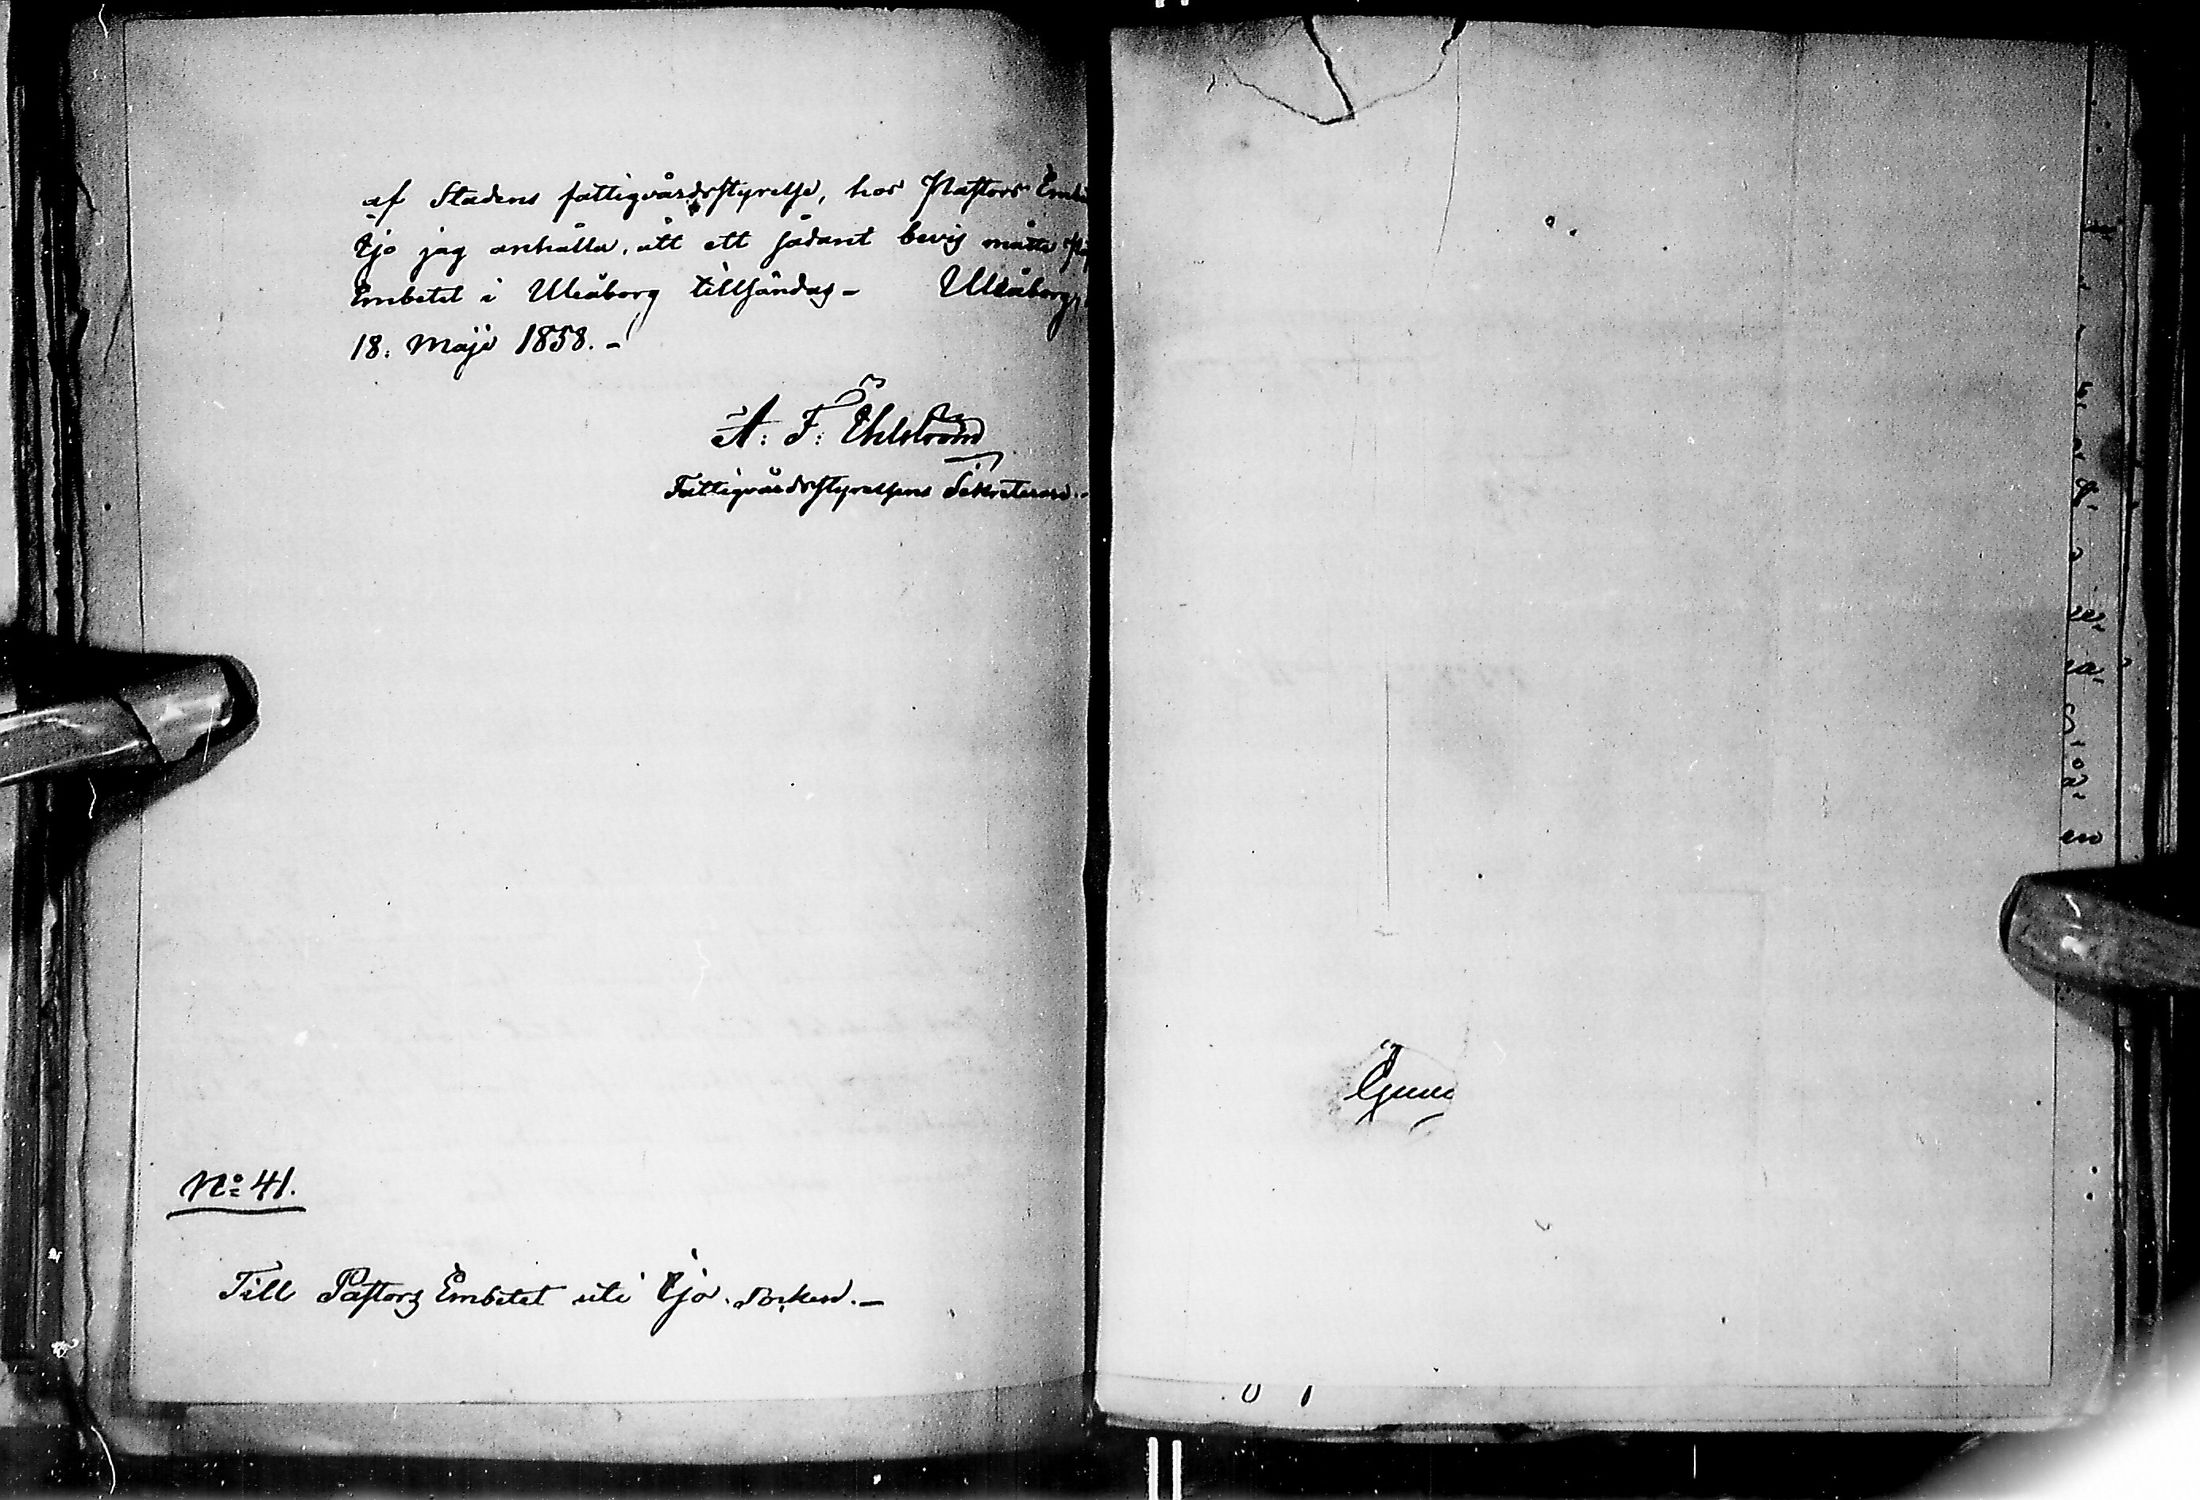 af Stadens fattigvårdsstyrelse, hos Pastors Emb
Ijo jag anhålla, att ett sådant bevis måtte Pa
Embetet i Uleåborg tillsändas – Uleåborg,
18. Maji 1858. –
A: F: Ehlström
Fattigvårdsstyrelsens Sekreterare.
No 41.
Till Pastors Embetet uti Ijo Socken. –
en